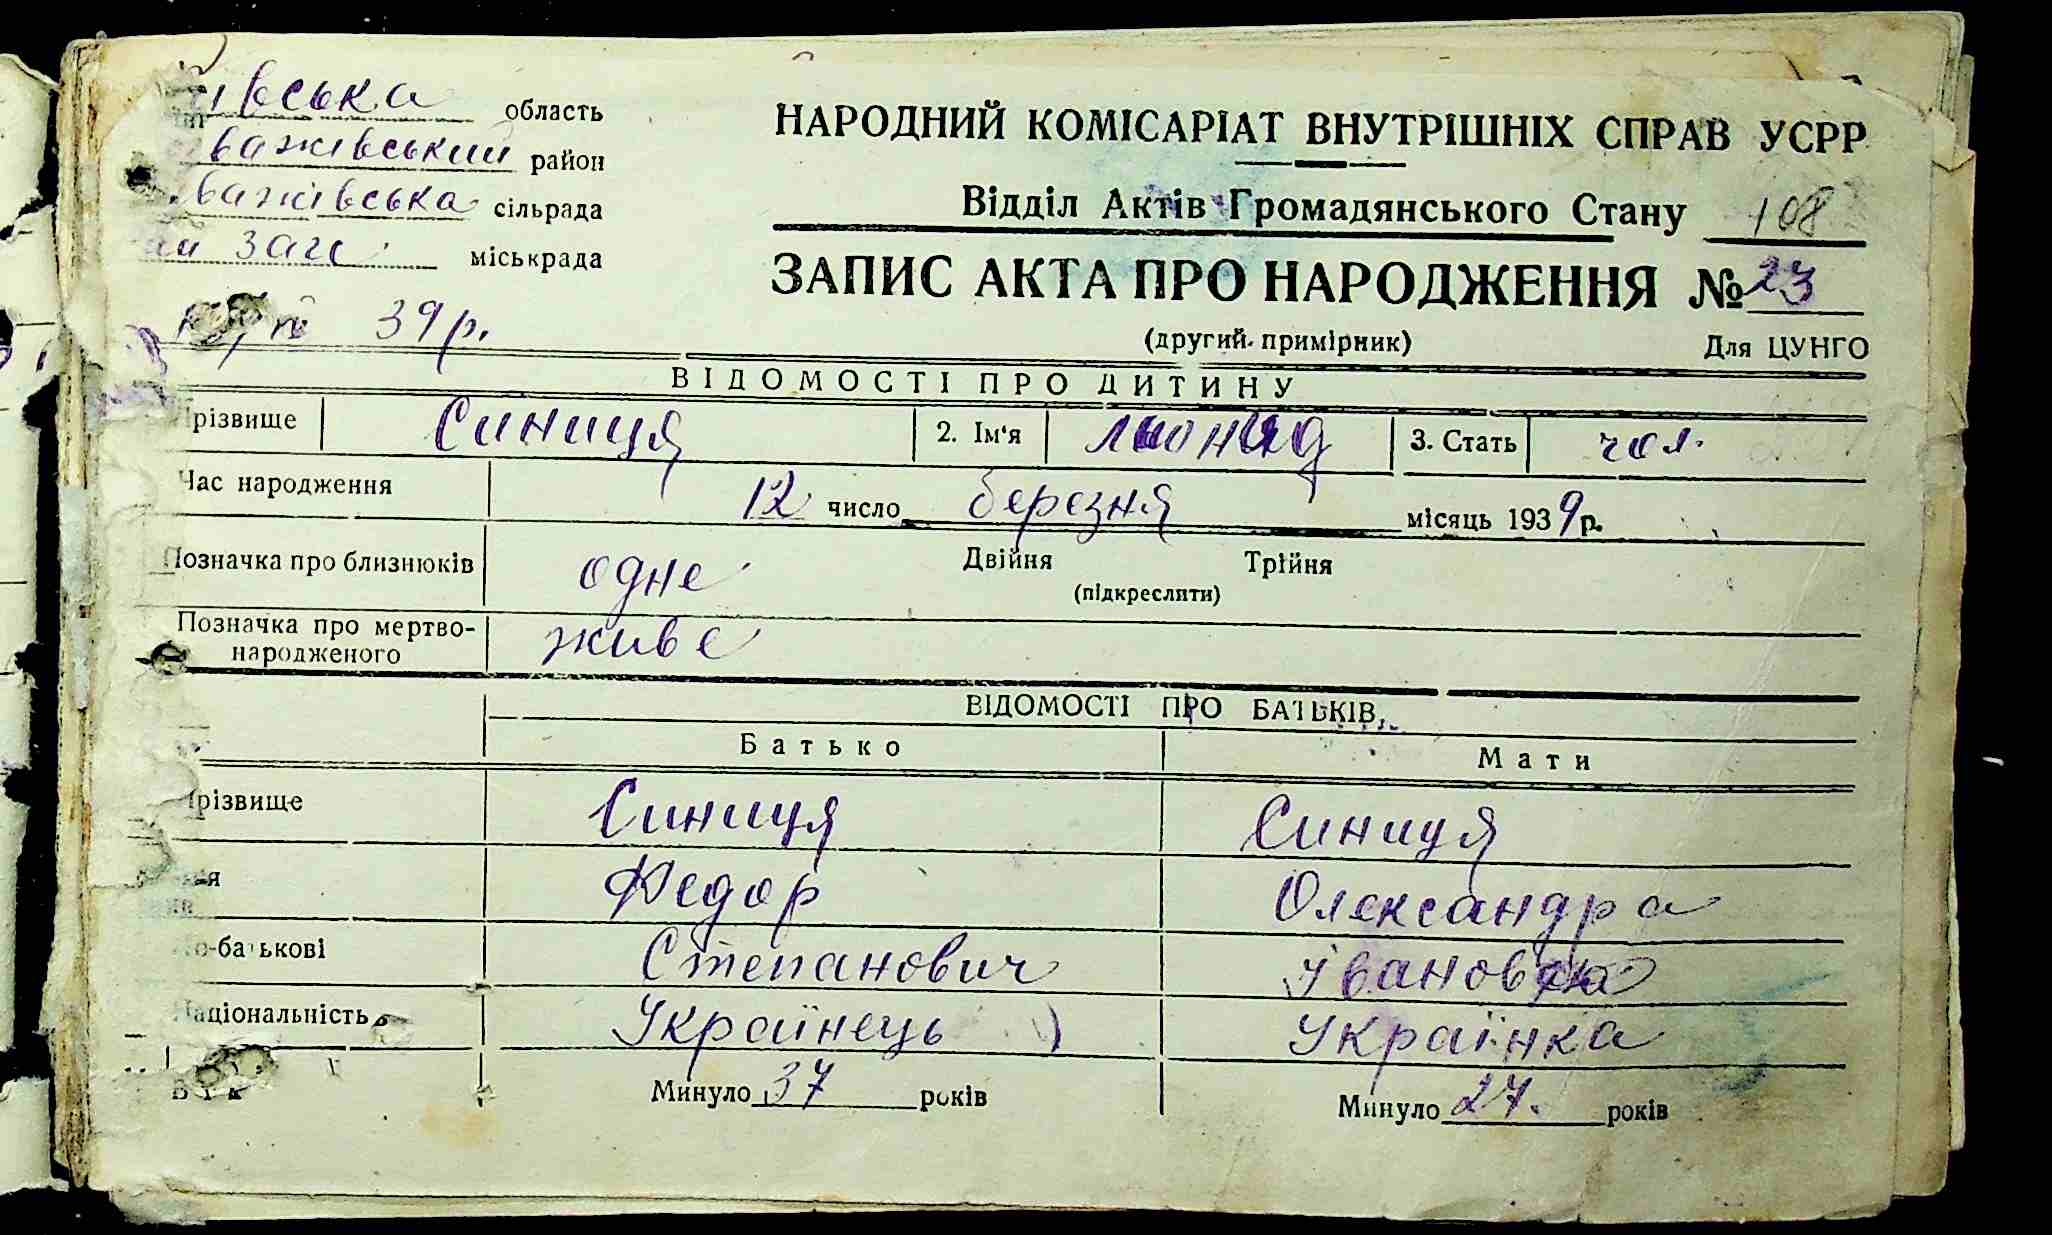 івська область
важівський район
важівська сільрада
ЗАГС міськрада
39 р.
НАРОДНИЙ КОМІСАРІАТ ВНУТРІШНІХ СПРАВ УСРР
Відділ Актів Громадянського Стану 108
ЗАПИС АКТА ПРО НАРОДЖЕННЯ № 23
(другий примірник) Для ЦУНГО
ВІДОМОСТІ ПРО ДИТИНУ
різвище Синиця 2. Ім'я 3. Стать чол.
Час народження 12 число березня місяць 1939 р.
Позначка про близнюків одне Двійня Трійня
(підкреслити)
Позначка про мертво-
народженого живе
ВІДОМОСТІ ПРО БАТЬКІВ
Батько Мати
різвище Синиця Синиця
Федор Олександра
по-батькові Степанович Івановна
Національність Українець Українка
Вік Минуло 37 років Минуло 27. років